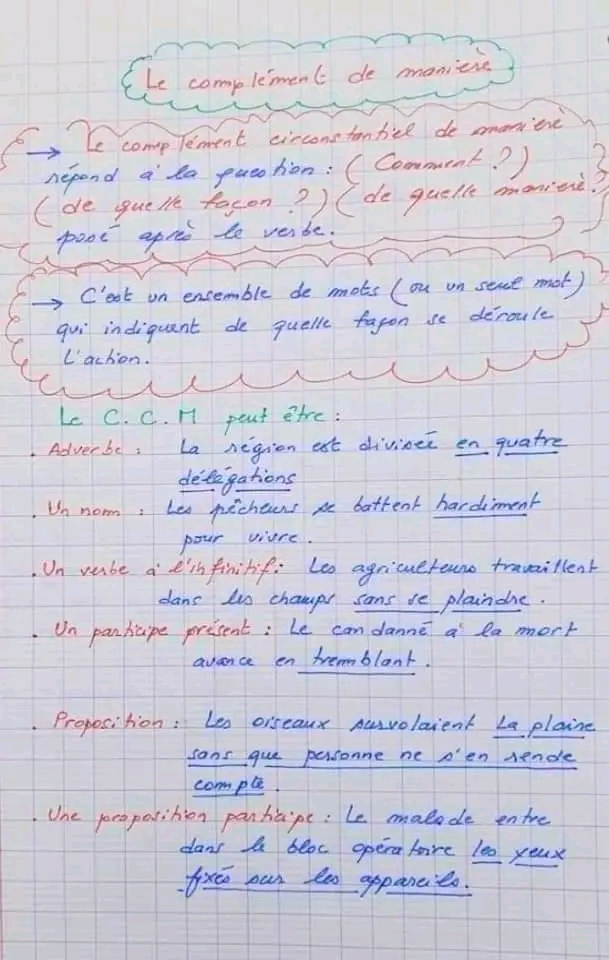 Le complément de manière
→ Le complément circonstantiel de manière
répond à la question : ( Comment ? )
( de quelle façon ? ) ( de quelle manière ?
posé après le verbe.
→ C'est un ensemble de mots ( ou un seul mot )
qui indiquent de quelle façon se déroule
L'action.
Le C.C.M peut être :
. Adverbe : La région est divisée en quatre
délégations
. Un nom : Les pêcheurs se battent hardiment
pour vivre.
. Un verbe à l'infinitif : Les agriculteurs travaillent
dans les champs sans se plaindre.
. Un participe présent : Le candanné à la mort
avance en tremblant.
. Proposition : Les oiseaux survolaient la plaine
sans que personne ne s'en rende
compte.
. Une proposition participe : Le malade entre
dans le bloc opératoire les yeux
fixés sur les appareils.